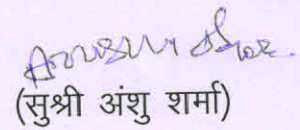 (सुश्री अंशु शर्मा)